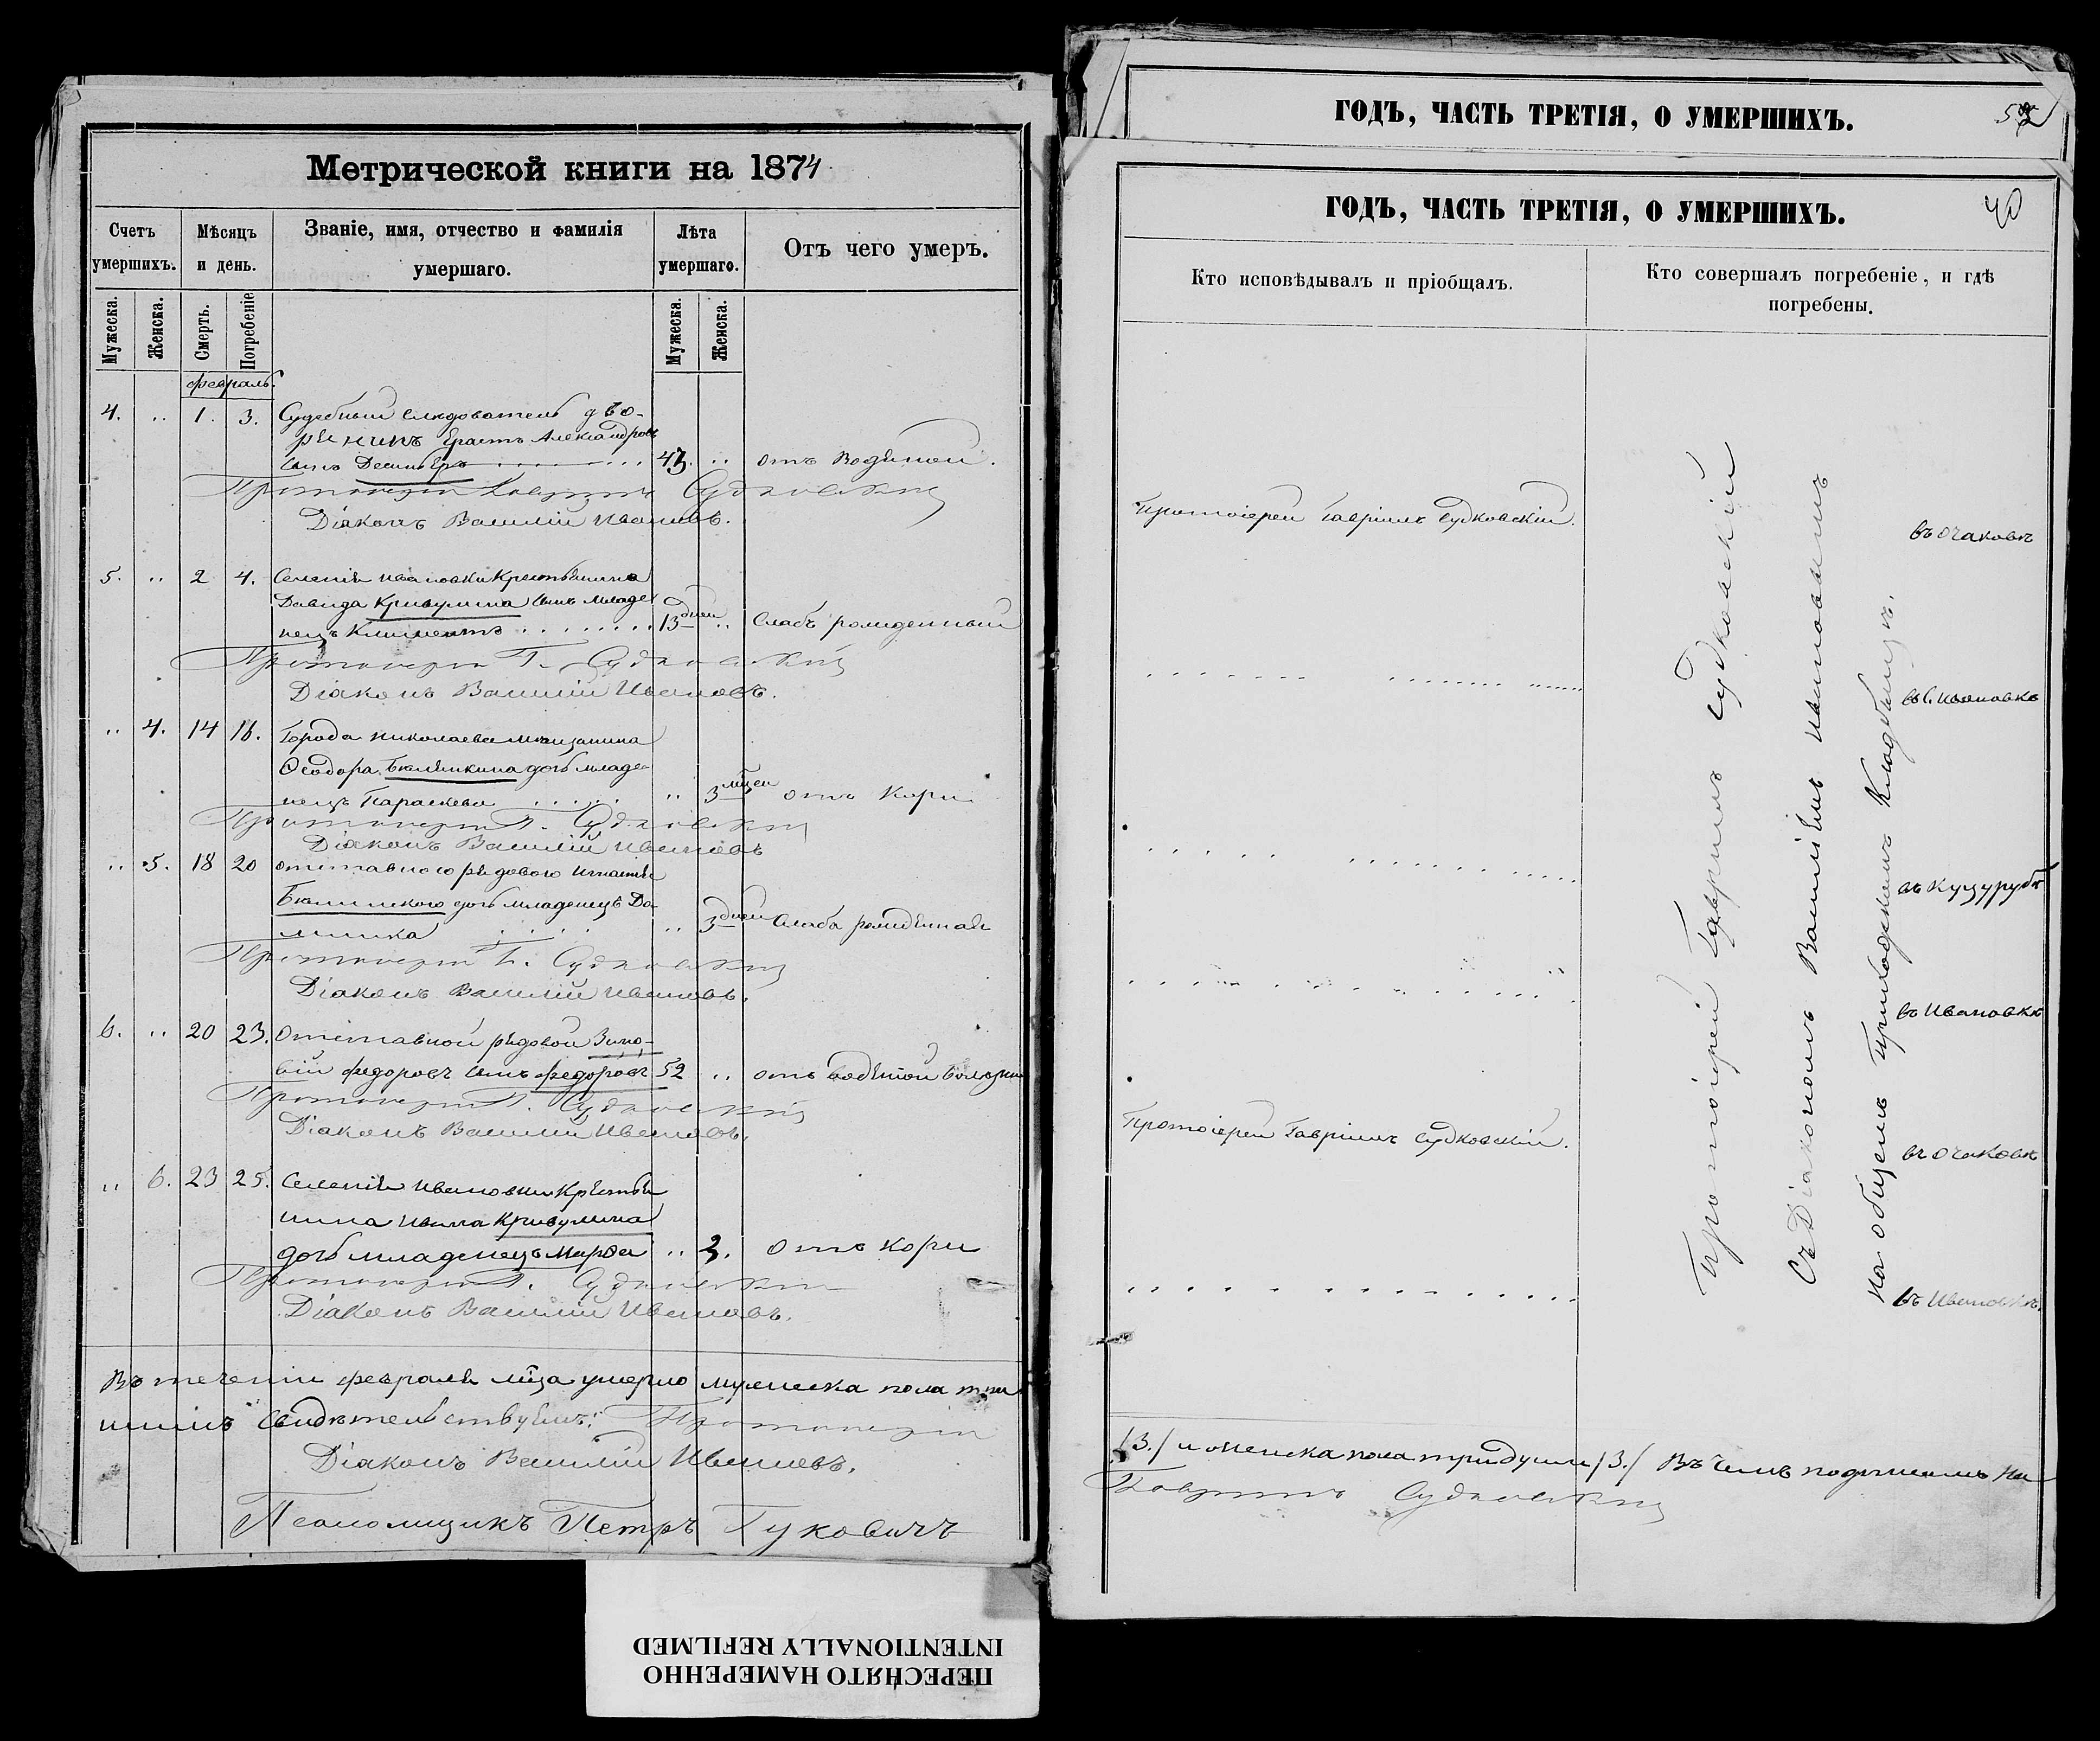 Метрической книги на 1874
Счетъ умершихъ.
Мѣсяцъ и день.
Званіе, имя, отчество и фамилія умершаго.
Лѣта умершаго.
Отъ чего умеръ.
Мужеска.
Женска.
Смерть.
Погребеніе
Мужеска.
Женска.
февраль.
4. „ 1. 3. Судебный следователь дво-
рянинъ Ерастъ Александровъ
сынъ 43. „ отъ Водяной.
Протоіерей Гавріилъ Судковскій
Діаконъ Василій Ивановъ.
5. „ 2 4. Селенія Ивановки Крестьянина
Давида Кривулина сынъ младе
нецъ Климентъ 13 дней „ Слабъ рожденный
Протоіерей Г. Судковскій
Діаконъ Василій Ивановъ.
„ 4. 14 16. Города Николаева мѣщанина
Ѳеодора дочь младе-
нецъ Параскева „ 3 мцеи отъ Кори
Протоіерей Г. Судковскій
Діаконъ Василій Ивановъ
„ 5. 18 20 отставного рядового Игнатія
дочь младенецъ До-
мника „ 3 дней Слаба рожденная
Протоіерей Г. Судковскій
Діаконъ Василій Ивановъ.
6. „ 20 23. Отставной рядовой Зино-
вій Федоровъ сынъ Федоровъ 52 „ отъ водяной болезни
Протоіерей Г. Судковскій
Діаконъ Василій Ивановъ.
„ 6. 23 25. Селенія Ивановки Крестья
нина Ивана Кривулина
дочь младенецъ Марѳа „ 3. отъ Кори
Протоіерей Г. Судковскій
Діаконъ Василій Ивановъ.
Въ теченіи февраля мца умерло мужеска пола три
шимъ свидѣтельствуемъ: Протоіерей
Діаконъ Василій Ивановъ.
Псаломщикъ Петръ Гуковичъ
ГОДЪ, ЧАСТЬ ТРЕТІЯ, О УМЕРШИХЪ.
ГОДЪ, ЧАСТЬ ТРЕТІЯ, О УМЕРШИХЪ. 40
Кто исповѣдывалъ и пріобщалъ.
Кто совершалъ погребеніе, и гдѣ погребены.
Протоіерей Гавріилъ Судковскій.
въ Очаковѣ
въ с. Ивановкѣ
въ Куцурубѣ
въ Ивановкѣ
Протоіерей Гавріилъ Судковскій.
въ Очаковѣ
въ Ивановкѣ.
Протоіерей Гавріилъ Судковскій
Съ Діакономъ Василіемъ Ивановымъ
на общемъ Приходскомъ Кладбищѣ.
/3./ и женска пола три души /3./ Въ чемъ подписомъ на
Гавріилъ Судковскій
ПЕРЕСНЯТО НАМЕРЕННО
INTENTIONALLY REFILMED